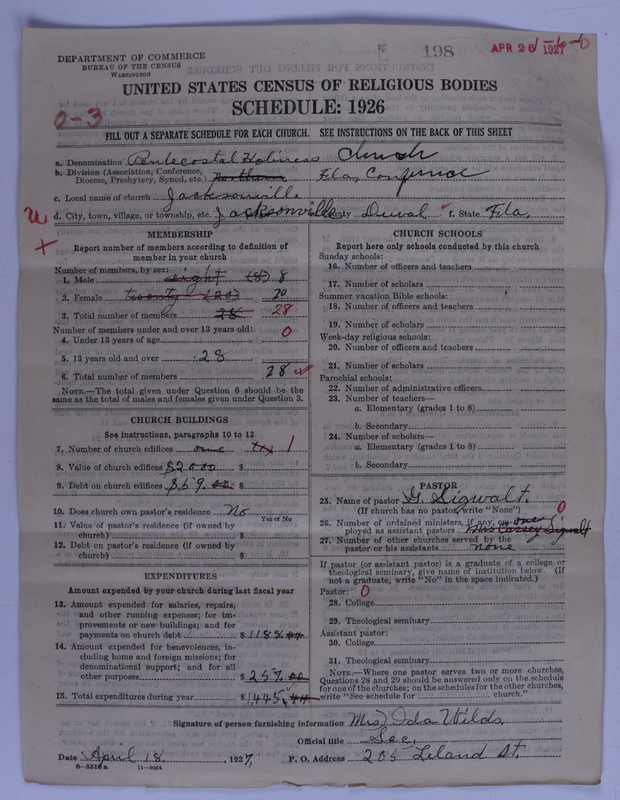 198
APR 26 1927
DEPARTMENT OF COMMERCE
BUREAU OF THE CENSUS
WASHINGTON
UNITED STATES CENSUS OF RELIGIOUS BODIES
SCHEDULE: 1926
0-3
FILL OUT A SEPARATE SCHEDULE FOR EACH CHURCH. SEE INSTRUCTIONS ON THE BACK OF THIS SHEET
a. Denomination Pentecostal Holiness Church
b. Division (Association, Conference, Diocese, Presbytery, Synod, etc.) Fla, Conference
c. Local name of church Jacksonville
d. City, town, village, or township, etc. Jacksonville County Duval f. State Fla.
MEMBERSHIP
Report number of members according to definition of
member in your church
Number of members, by sex:
1. Male eight (8) 8
2. Female twenty (20) 20
3. Total number of members 28 28
Number of members under and over 13 years old:
4. Under 13 years of age 0
5. 13 years old and over 28
6. Total number of members 28
NOTE.—The total given under Question 6 should be the
same as the total of males and females given under Question 3.
CHURCH BUILDINGS
See instructions, paragraphs 10 to 12
7. Number of church edifices one 1
8. Value of church edifices $2000 $
9. Debt on church edifices $59.00 $
10. Does church own pastor's residence No
Yes or No
11. Value of pastor's residence (if owned by
church) $
12. Debt on pastor's residence (if owned by
church) $
EXPENDITURES
Amount expended by your church during last fiscal year
13. Amount expended for salaries, repairs,
and other running expenses; for im-
provements or new buildings; and for
payments on church debt $1188.44
14. Amount expended for benevolences, in-
cluding home and foreign missions; for
denominational support; and for all
other purposes $257.00
15. Total expenditures during year $1445.44
CHURCH SCHOOLS
Report here only schools conducted by this church
Sunday schools:
16. Number of officers and teachers
17. Number of scholars
Summer vacation Bible schools:
18. Number of officers and teachers
19. Number of scholars
Week-day religious schools:
20. Number of officers and teachers
21. Number of scholars
Parochial schools:
22. Number of administrative officers
23. Number of teachers—
a. Elementary (grades 1 to 8)
b. Secondary
24. Number of scholars—
a. Elementary (grades 1 to 8)
b. Secondary
PASTOR
25. Name of pastor G. Sigwalt.
(If church has no pastor, write "None")
0
26. Number of ordained ministers, if any, em- one
ployed as assistant pastors Miss Cassey Sigwalt
27. Number of other churches served by the
pastor or his assistants none
If pastor (or assistant pastor) is a graduate of a college or
theological seminary, give name of institution below. (If
not a graduate, write "No" in the space indicated.)
Pastor: 0
28. College
29. Theological seminary
Assistant pastor:
30. College
31. Theological seminary
NOTE.—Where one pastor serves two or more churches,
Questions 28 and 29 should be answered only on the schedule
for one of the churches; on the schedules for the other churches,
write "See schedule for church."
Signature of person furnishing information Mrs Ida Wilds,
Official title Sec,
Date April 18, 1927, P. O. Address 205 Leland St,
8—5518a 11—9034